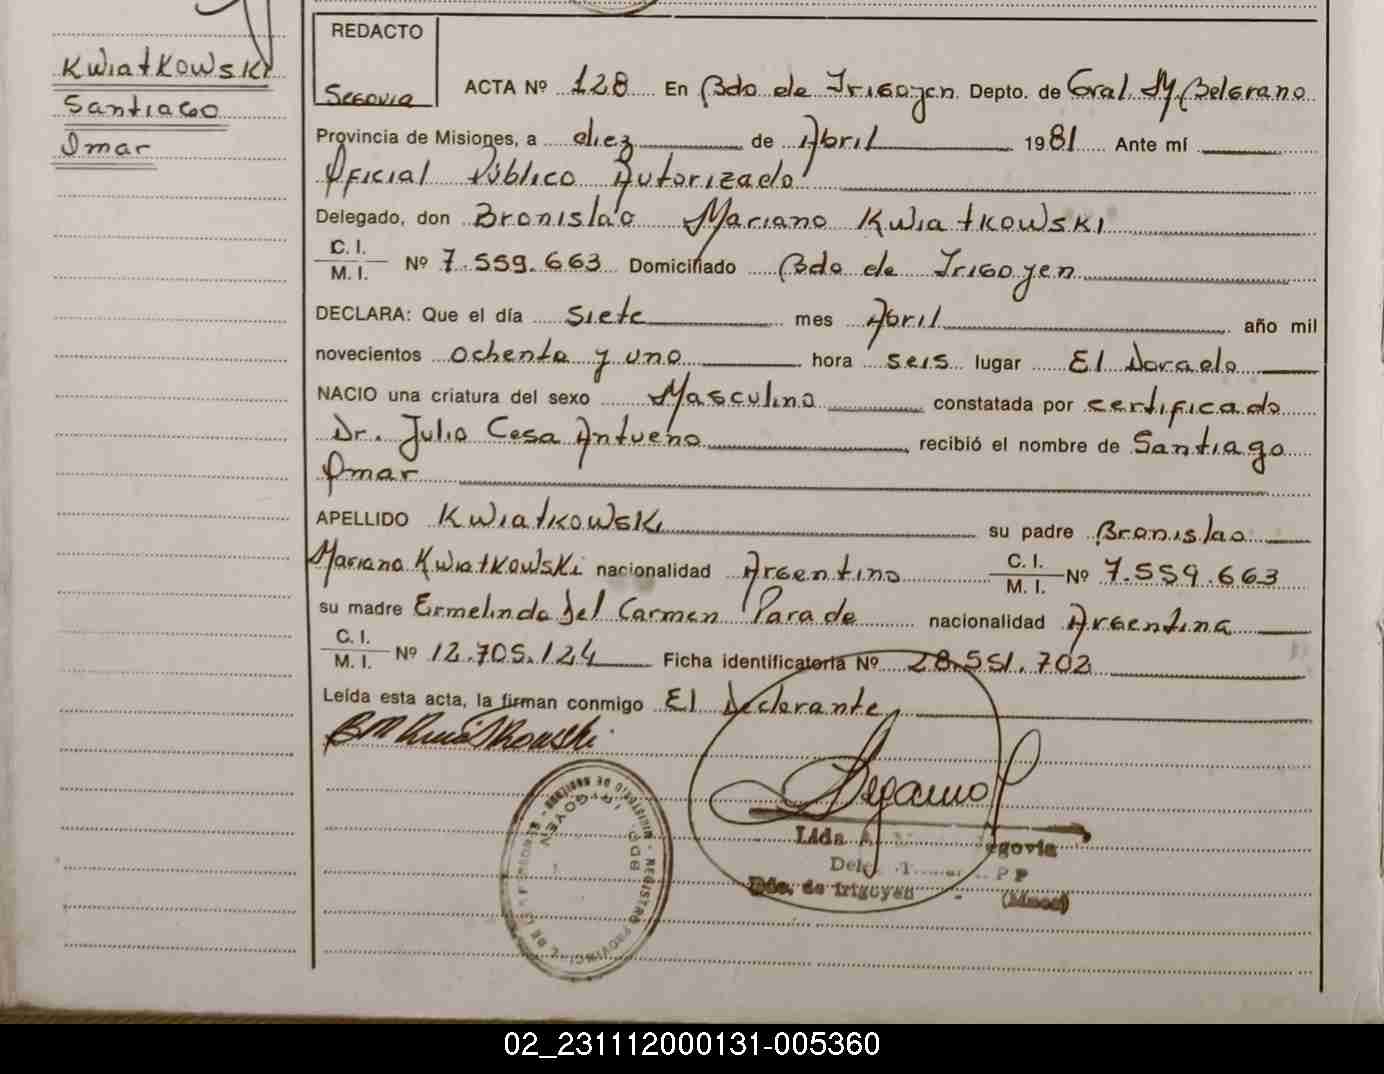 Kwiatkowski
Santiago
Omar
REDACTO
Segovia
ACTA Nº 128 En Bdo de Irigoyen Depto. de Gral. M. Belgrano
Provincia de Misiones, a diez de Abril 1981 Ante mí
Oficial Público Autorizado
Delegado, don Bronislao Mariano Kwiatkowski
C. I.
M. I. Nº 7.559.663 Domiciliado Bdo de Irigoyen
DECLARA: Que el día siete mes Abril año mil
novecientos ochenta y uno hora seis lugar El Dorado
NACIO una criatura del sexo Masculino constatada por certificado
Dr. Julio Cesa Antueno, recibió el nombre de Santiago
Omar
APELLIDO Kwiatkowski su padre Bronislao
Mariano Kwiatkowski nacionalidad Argentino C. I.
M. I. Nº 7.559.663
su madre Ermelinda del Carmen Parade nacionalidad Argentina
C. I.
M. I. Nº 12.705.124 Ficha identificatoria Nº 28.551.702
Leída esta acta, la firman conmigo El Declarante
Lida A. Segovia
Bdo. de Irigoyen (Mnes)
02_231112000131-005360